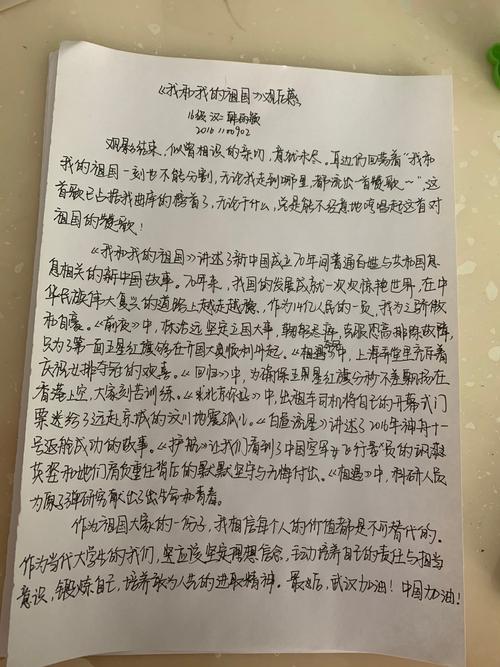 《我和我的祖国》观后感
16级 汉二
2016110902
观影结束,似曾相识的亲切,意犹未尽。耳边仍回荡着“我和
我的祖国一刻也不能分割,无论我走到哪里,都流出一首赞歌~”,这
首歌已占据我曲库的榜首了,无论干什么,总是能不经意地哼唱起这首对
祖国的赞歌!
《我和我的祖国》讲述了新中国成立70年间普通百姓与共和国息
息相关的新中国故事。70年来,我国的发展成就一次次惊艳世界,在中
华民族伟大复兴的道路上越走越稳,作为14亿人民的一员,我为之骄傲
和自豪。《前夜》中,林治远坚定立国大事,克服恐高排除故障,
只为了第一面五星红旗能在开国大典顺利升起。《夺冠》中,上海弄堂里齐齐着
庆祝女排夺冠的欢喜。《回归》中,为确保五星红旗分秒不差飘扬在
香港上空,大家刻苦训练。《北京你好》中,出租车司机将自己的开幕式门
票送给了远赴京城的汶川地震孤儿。《白昼流星》讲述了2016年神舟十一
号返航成功的故事。《护航》让我们看到了中国空军女飞行员的飒爽
英姿和她们肩负重任背后的默默坚守与无悔付出。《相遇》中,科研人员
为原子弹研究献出了生命和青春。
作为祖国大家的一份子,我相信每个人的价值都是不可替代的。
作为当代大学生的我们,更应该坚定理想信念,主动培养自己的责任与担当
意识,锻炼自己,培养敢为人先的进取精神。最后,武汉加油!中国加油!